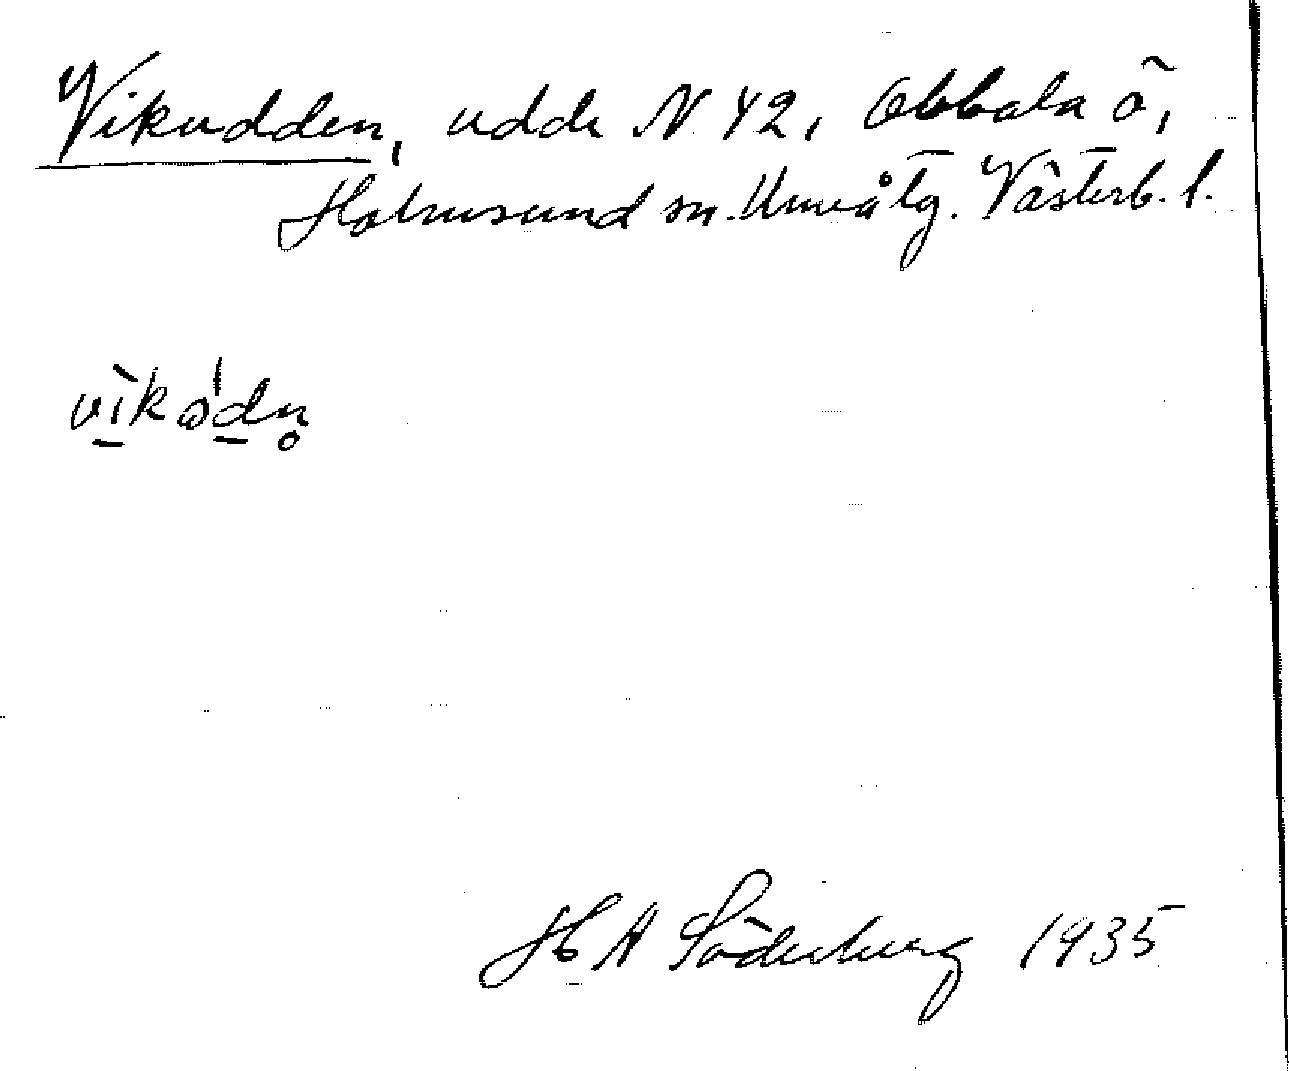 Vikudden, udde N 42, Obbola ö,
Holmsund sn. Umeå tg. Västerb. l.
vìkødn̥
H A Söderberg 1935